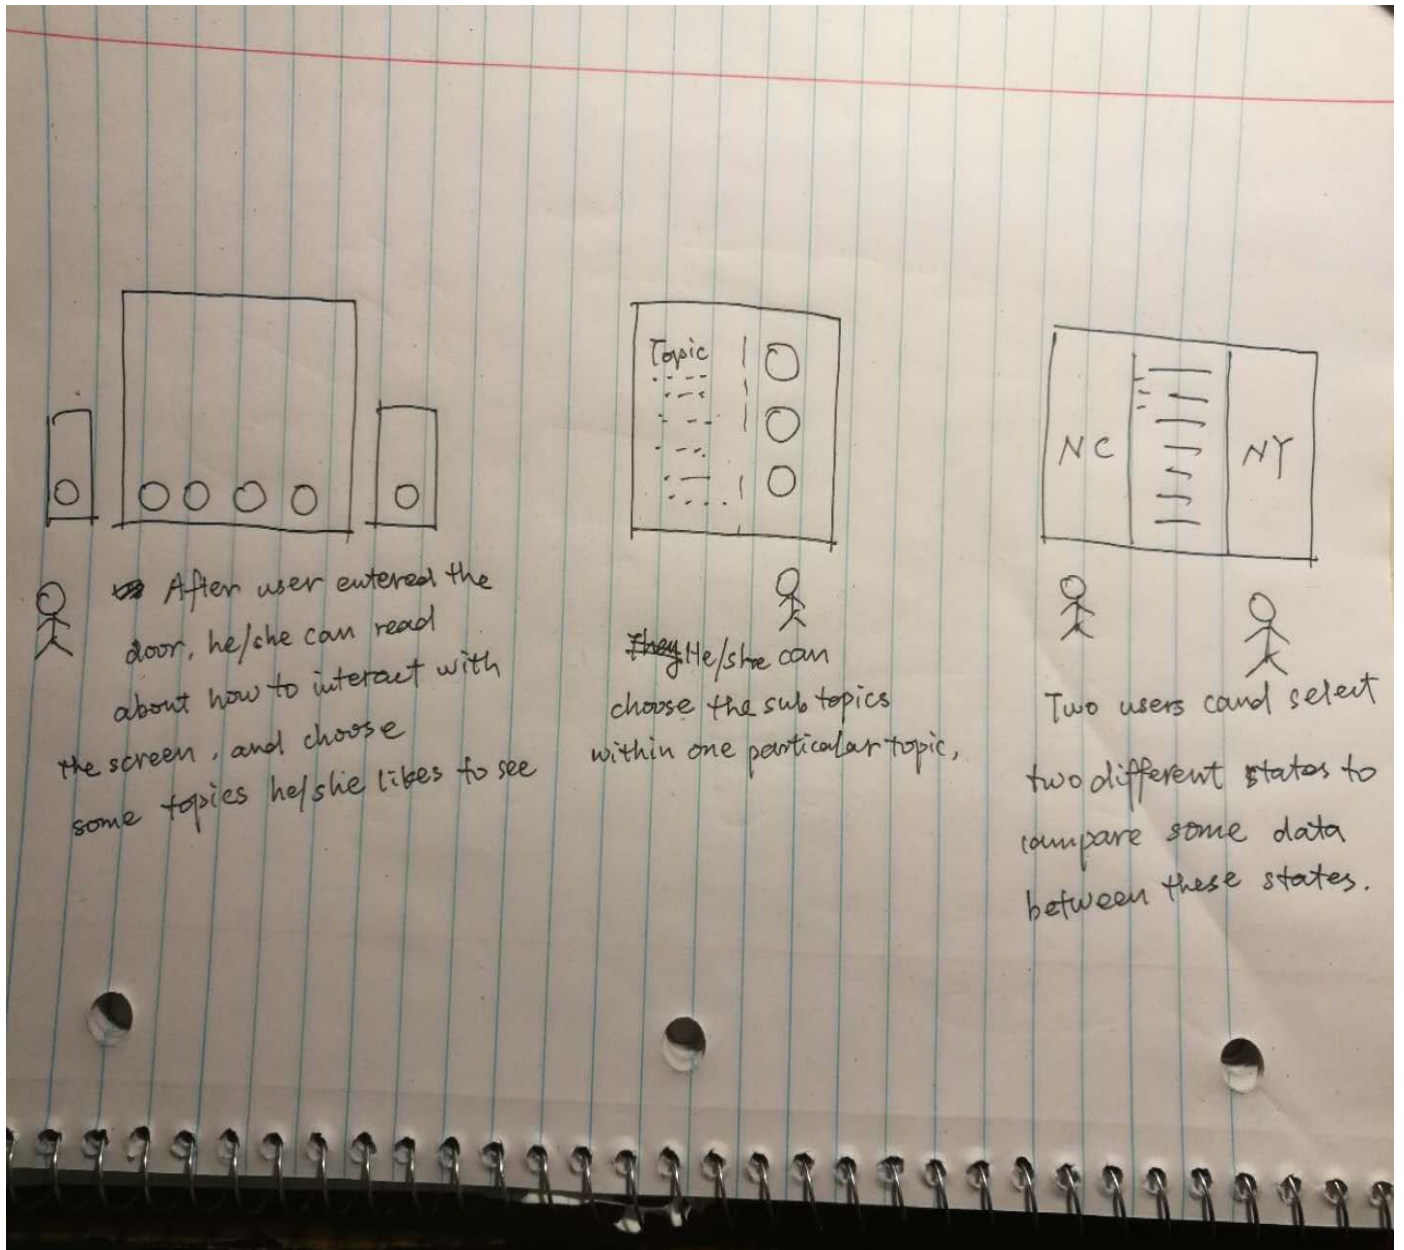 After user entered the
door, he/she can read
about how to interact with
the screen, and choose
some topics he/she likes to see
Topic
They He/she can
choose the sub topics
within one particular topic,
NC
NY
Two users cand select
two different states to
compare some data
between these states.